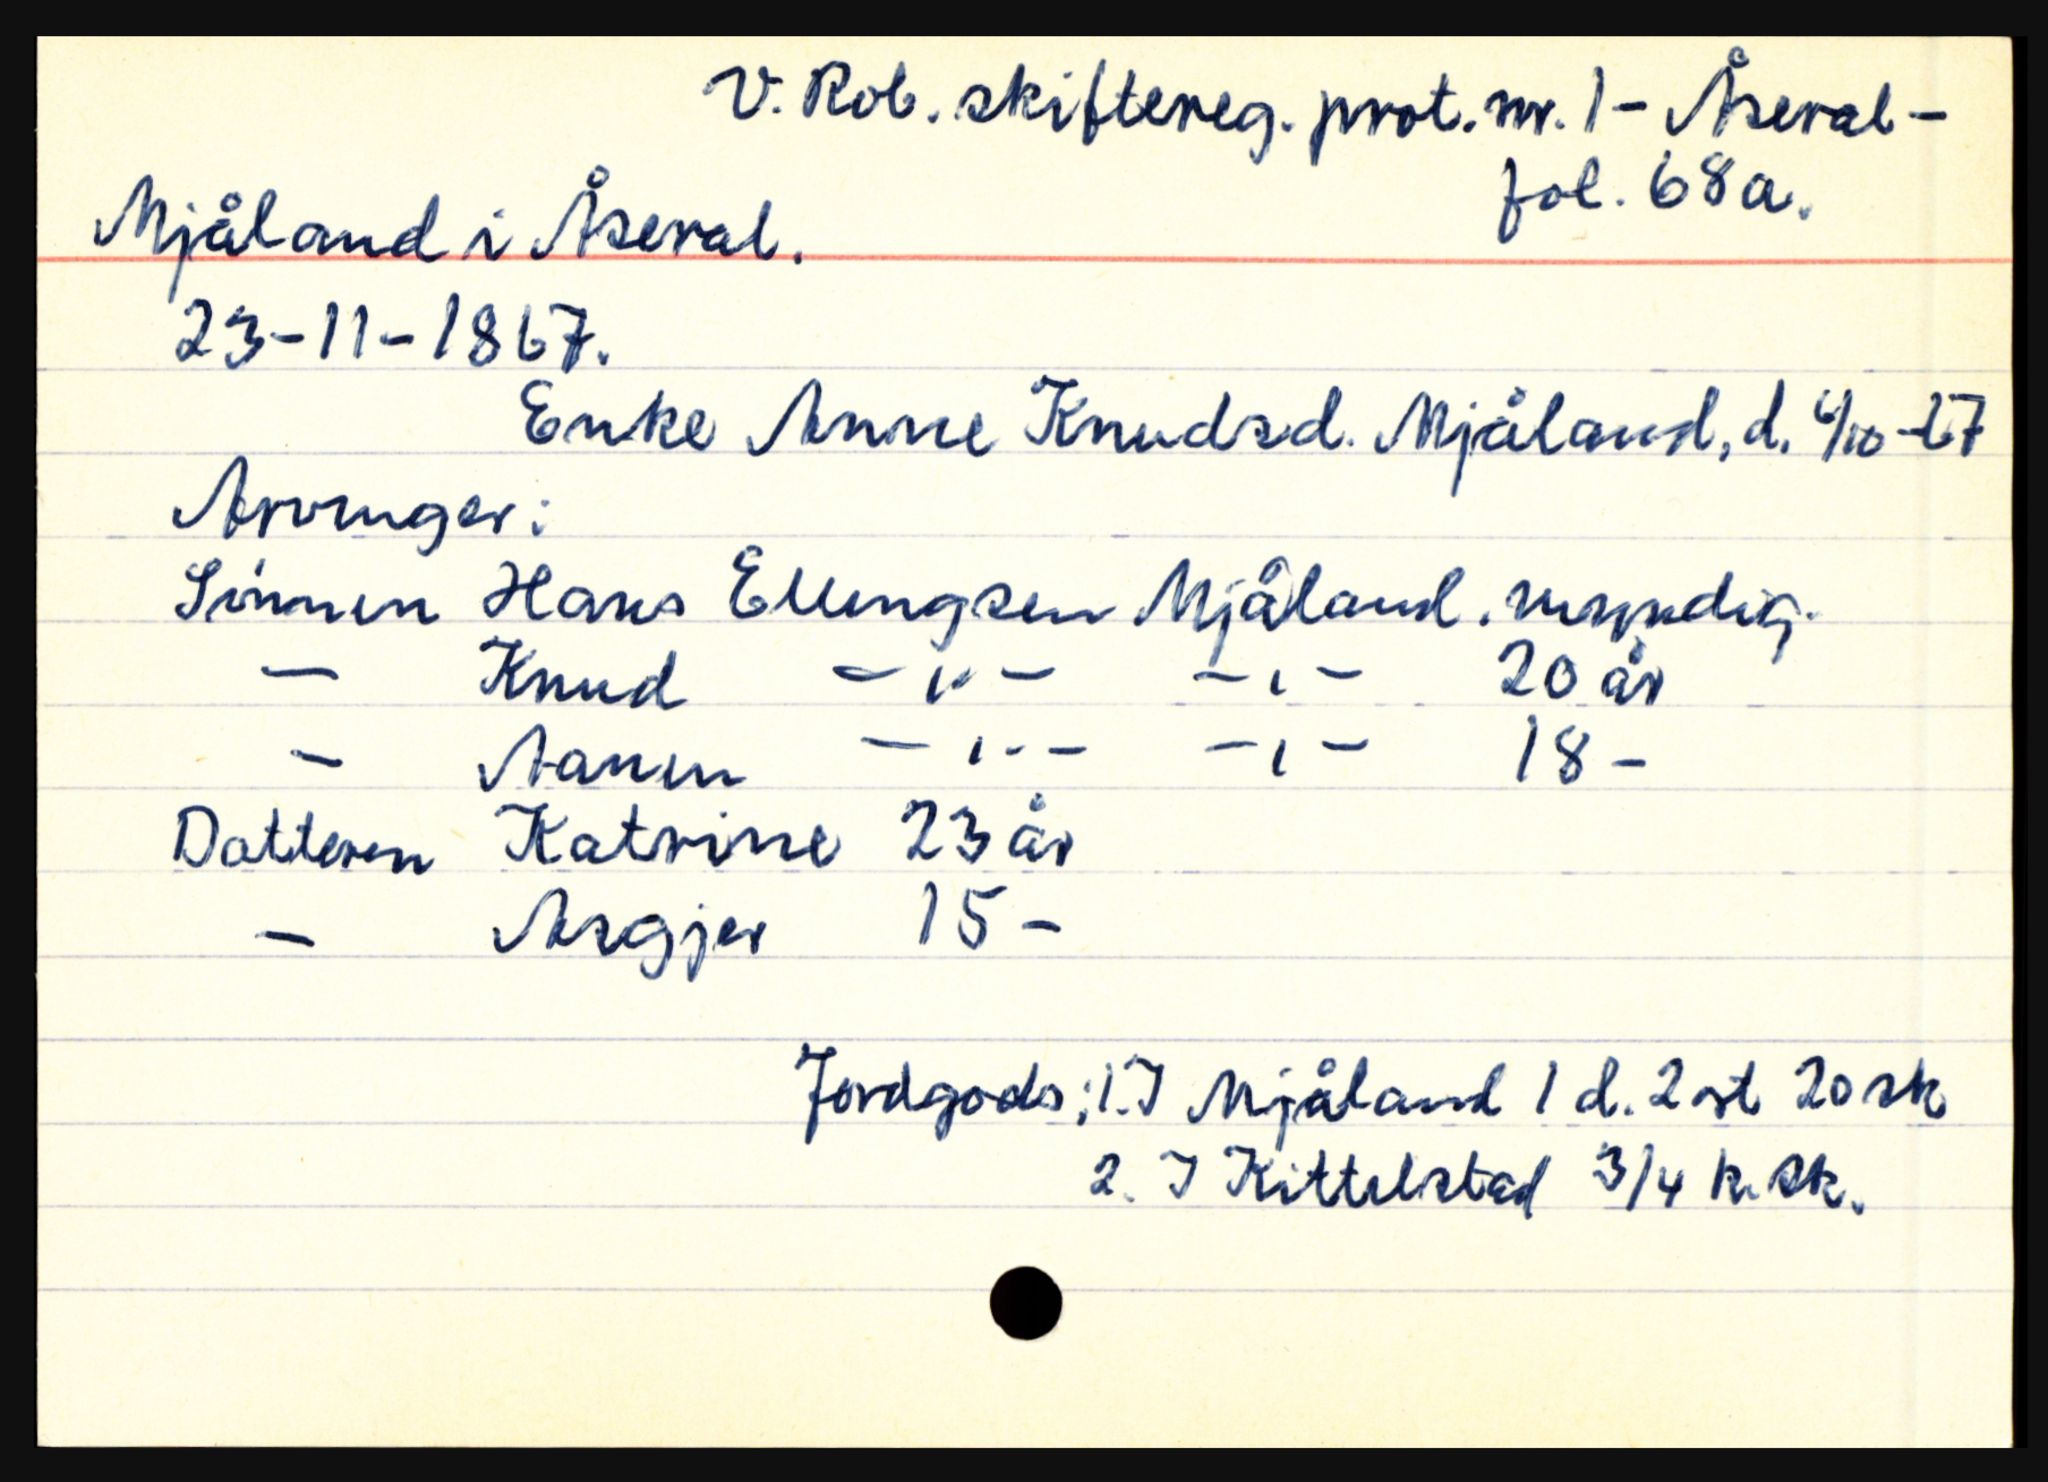 V. Rob. skiftereg. prot. nr. 1 - Åseral -
fol. 68a.
Mjåland i Åseral.
23-11-1867.
Enke Anne Knudsd. Mjåland, d. 4/10-67
Arvinger:
Sönnen Hans Ellingsen Mjåland. myndig.
— Knud — " — — " — 20 år
— Aanen — " — — " — 18 -
Datteren Katrine 23 år
— Asgjer 15 -
Jordgods: 1. I Mjåland 1 d. 2 ort 20 sk
2. I Kittelstad 3/4 k. sk.